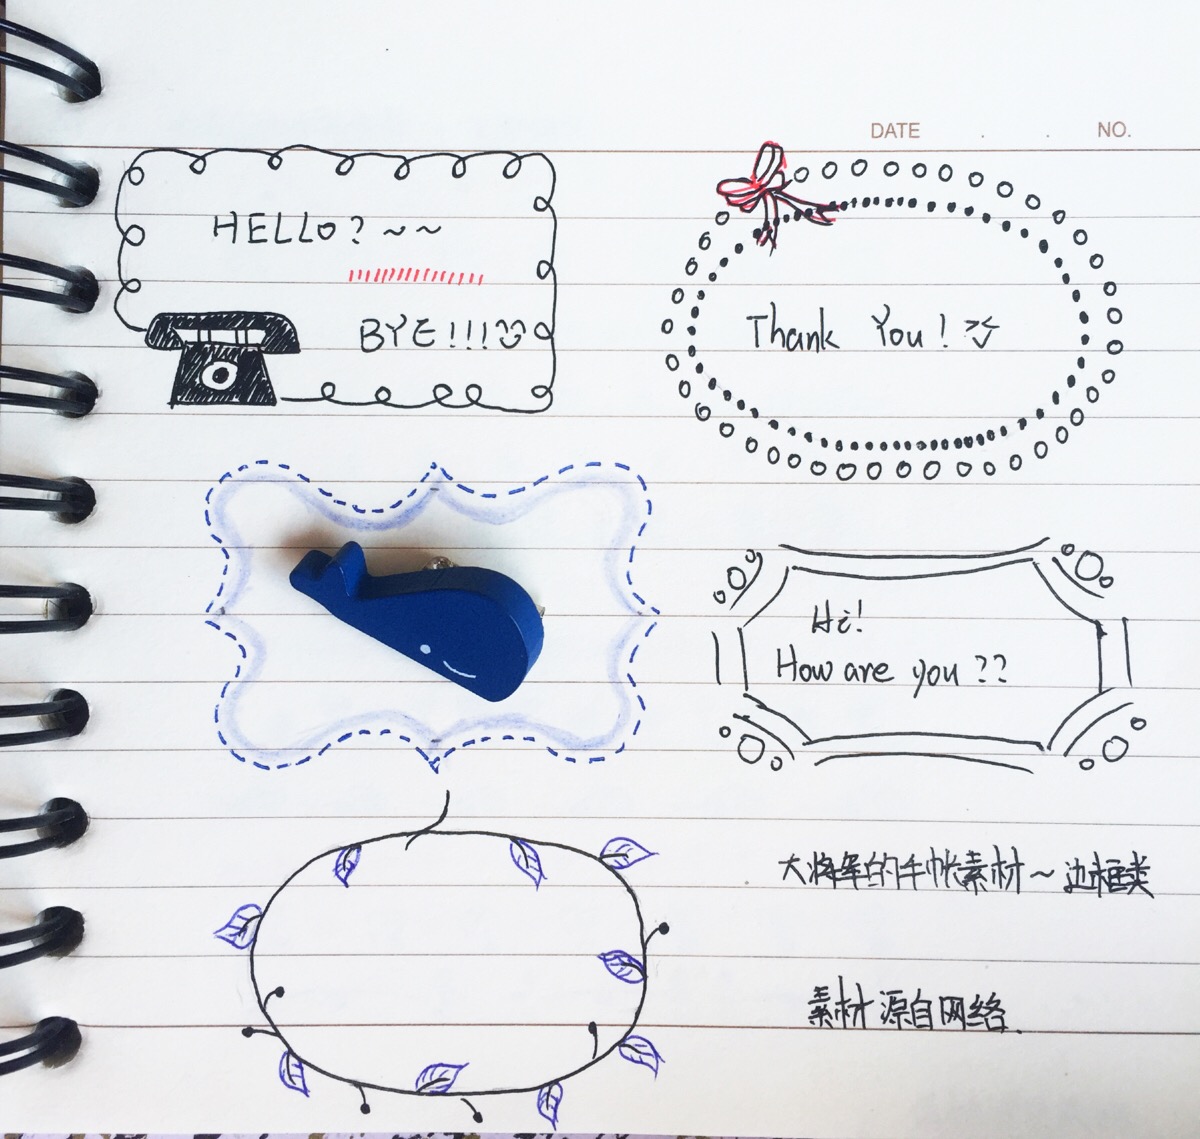 DATE . . NO.
HELLO? ~~
BYE!!!
Thank You! ><
Hi!
How are you ??
大将军的手帐素材~边框类
素材源自网络.